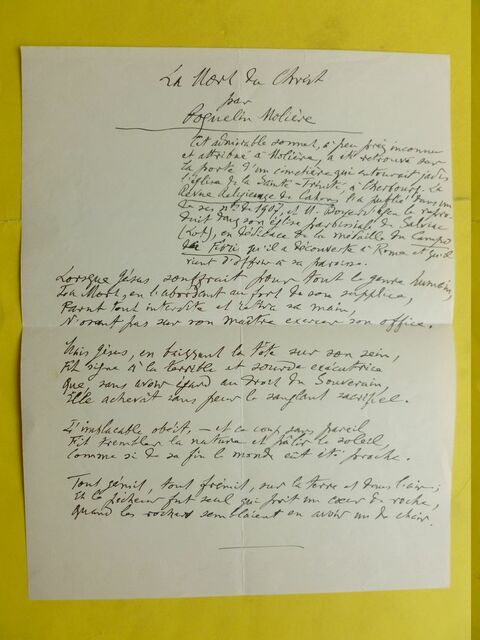 La Mort du Christ
par
Poquelin Molière
Cet admirable sonnet, à peu près inconnu
et attribué à Molière, a été retrouvé sur
la porte d'un cimetière qui entourait jadis
l'église de la Sainte-Trinité, à Cherbourg. La
Revue Religieuse de Cahors l'a publié dans un
de ses nos de 1907, et M.
duit dans son église paroissiale de
(Lot), en dédicace de la médaille du Campo
dei Fiori qu'il a découverte à Rome et qu'il
vient d'offrir à sa paroisse.
Lorsque Jésus souffrait pour tout le genre humain,
La Mort, en l'abordant au fort de son supplice,
Parut tout interdite et retira sa main,
N'osant pas sur son maître exercer son office.
Mais Jésus, en baissant la tête sur son sein,
Fit signe à la terrible et sourde exécutrice
Que, sans avoir égard au droit du Souverain,
Elle achevât sans peur le sanglant sacrifice.
L'implacable obéit, — et ce coup sans pareil
Fit trembler la nature et pâlir le soleil,
Comme si de sa fin le monde eût été proche.
Tout gémit, tout frémit, sur la terre et dans l'air;
Et le pécheur fut seul qui prit un cœur de roche,
Quand les rochers semblaient en avoir un de chair.